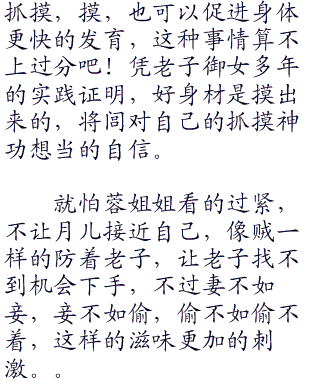 抓摸，摸，也可以促进身体
更快的发育，这种事情算不
上过分吧！凭老子御女多年
的实践证明，好身材是摸出
来的，将闾对自己的抓摸神
功想当的自信。
就怕蓉姐姐看的过紧，
不让月儿接近自己，像贼一
样的防着老子，让老子找不
到机会下手，不过妻不如
妾，妾不如偷，偷不如偷不
着，这样的滋味更加的刺
激。。